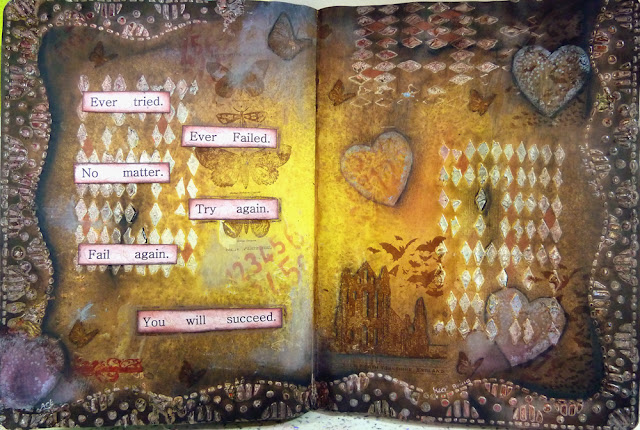 Ever tried.
Ever Failed.
No matter.
Try again.
Fail again.
You will succeed.
123456